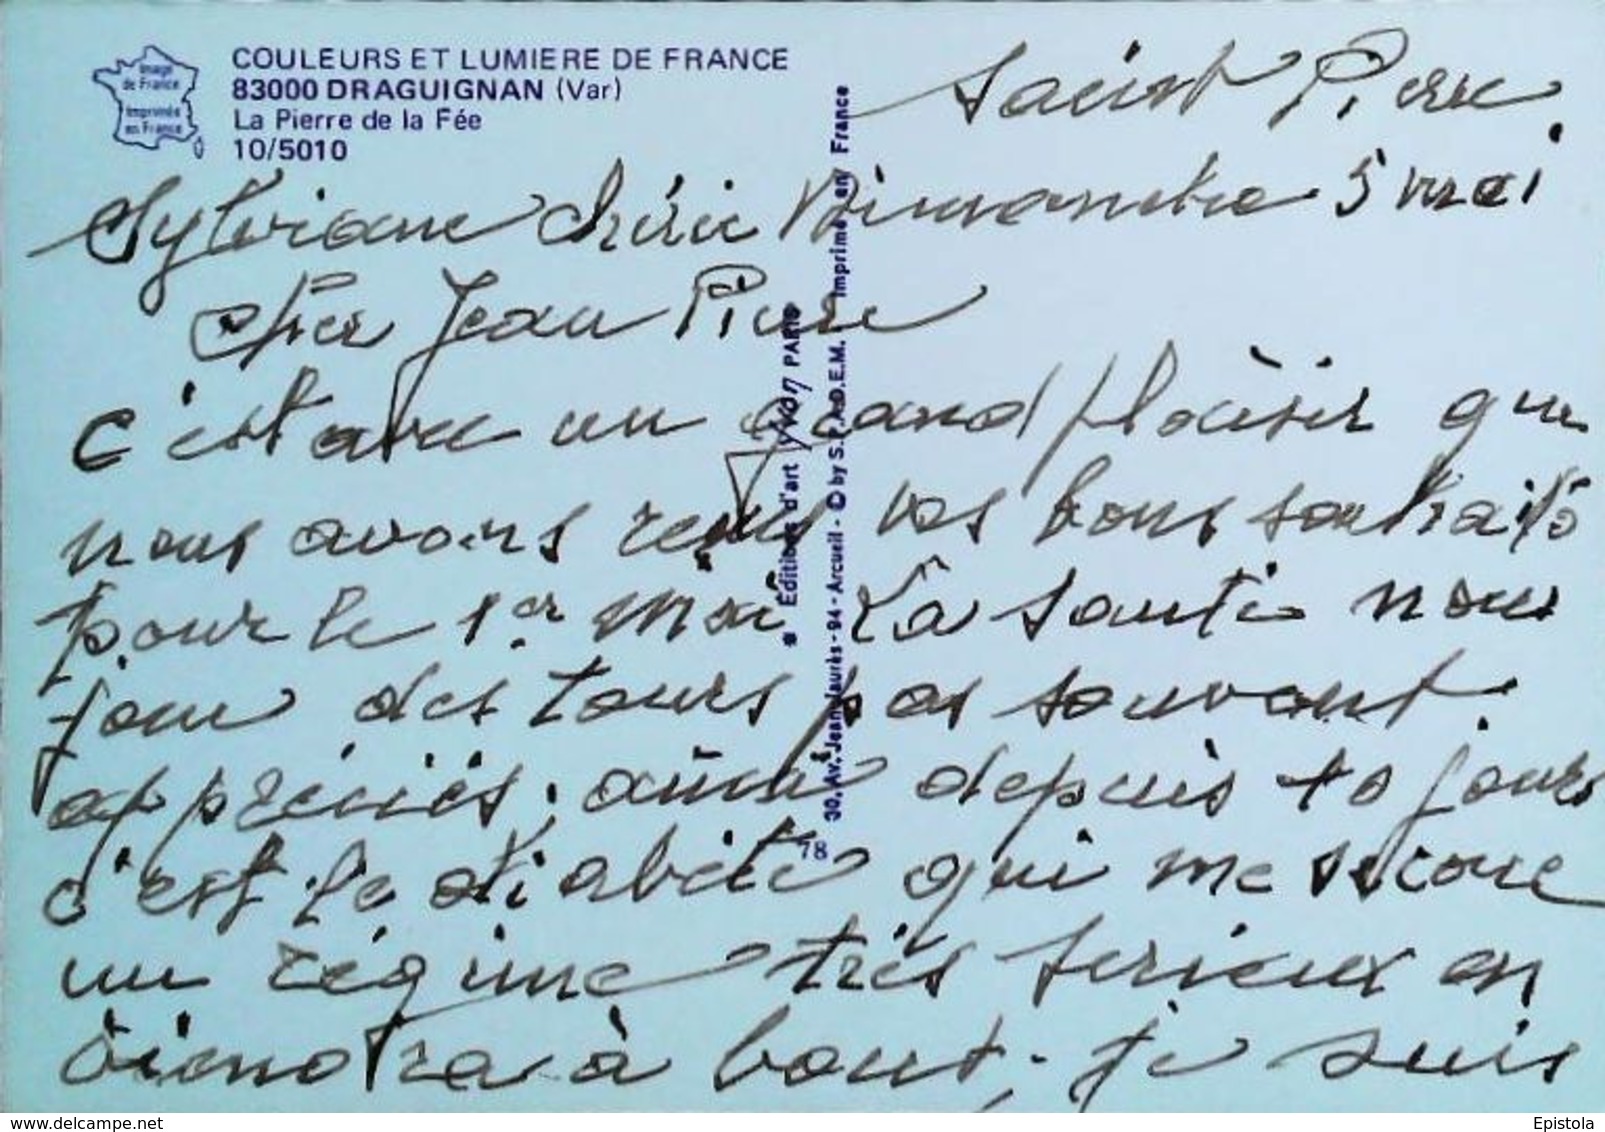 COULEURS ET LUMIERE DE FRANCE
83000 DRAGUIGNAN (Var)
La Pierre de la Fée
10/5010
Image
de France
Imprimée
en France
Saint Pierre
Dimanche 5 mai
Sylviane Chérie
Cher Jean Pierre
c'est avec un grand plaisir que
nous avons reçus vos bons souhaits
pour le 1er Mai La santé nous
joue des tours pas souvent
appréciés, depuis 10 jours
c'est le diabète qui me
un régime très serieux on
viendra à bout, je suis
Editions d'art YVON PARIS
30, Av. Jean-Jaurès - 94 - Arcueil - © by S.P.A.D.E.M. Imprimé en France
78
www.delcampe.net
Epistola